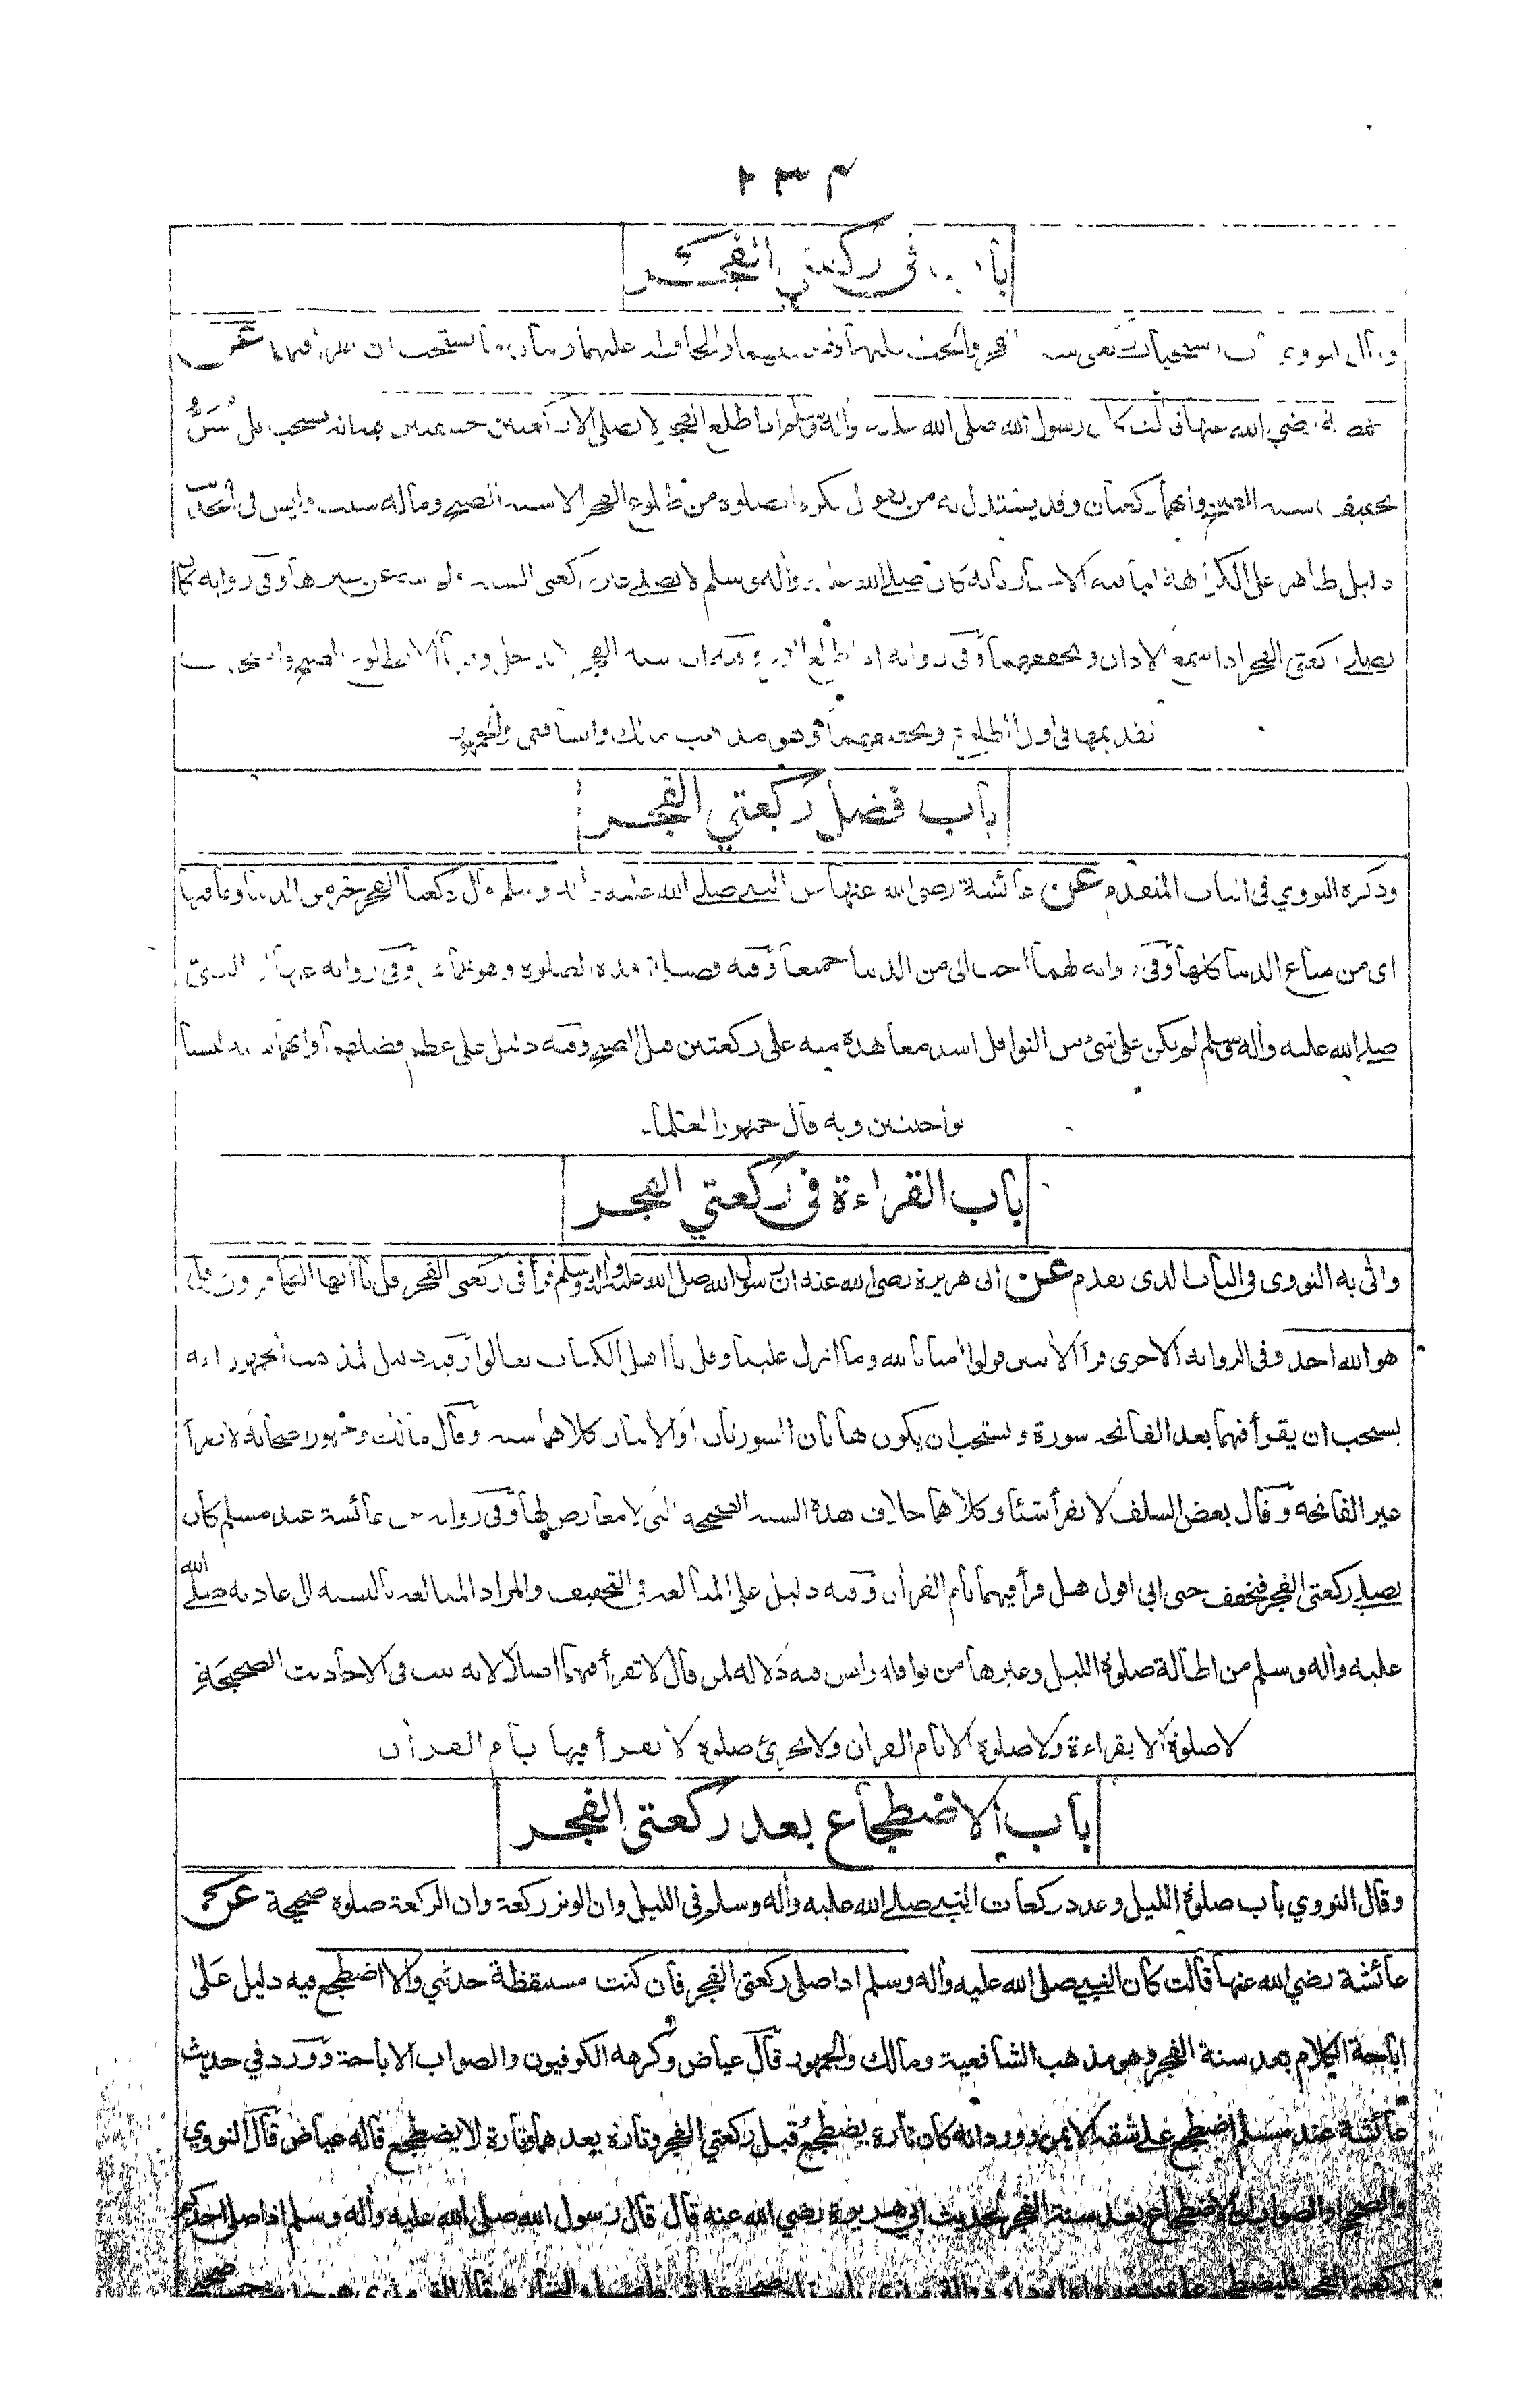 ٢٣٤
باب في ركعتي الفجر
النووي استحباب ركعتي سنة الفجر والحث عليهما وتخفيفهما والمحافظة عليهما وبيان ما يستحب ان يقرأ فيهما عن
حفصة رضي الله عنها قالت كان رسول الله صلى الله عليه وأله وسلم اذا طلع الفجر لا يصلي الا ركعتين خفيفتين فيه انه يسحب بل يُسَنُّ
تخفيف سنة الفجر وانهما ركعتان وقد يستدل به من يقول بكره الصلوة من طلوع الفجر الا سنة الصبح وماله سبب وليس في
دليل ظاهر على الكراهة كان صلے الله عليه وأله وسلم لا يصلے غير ركعتي السنة غيرها وفي رواية كان
يصلے ركعتي الفجر اذا سمع الاذان ويخففهما وفي رواية اذا طلع الفجر وفيه ان سنة الفجر لا يدخل وقتها الا بطلوع الصبح واستحباب
تقديمها في اول الطلوع وتخفيفهما وهو مذهب مالك والشافعي والجمهور
باب فضل ركعتي الفجر
وذكره النووي في الباب المتقدم عن عائشة رضي الله عنها عن النبي صلے الله عليه وأله وسلم قال ركعتا الفجر خير من الدنيا وما فيها
اى من متاع الدنيا كلها وفي رواية لهما احب الى من الدنيا جميعا وفيه فضيلة هذه الصلوة وفي رواية عنها ان النبي
صلے الله عليه وأله وسلم لم يكن على شئ من النوافل اشد معاهدة منه على ركعتين قبل الصبح وفيه دليل على عظم فضلهما وانهما سنة ليستا
بواجبتين وبه قال جمهور العلماء
باب القراءة في ركعتي الفجر
واتى به النووي في الباب الذى تقدم عن ابى هريرة رضى الله عنه ان رسول الله صلى الله عليه وأله وسلم قرأ في ركعتي الفجر قل يا ايها الكافرون وقل
هو الله احد وفى الرواية الاخرى قرأ الأيتين قولوا أمنا بالله وما انزل علينا وقل يا اهل الكتاب تعالوا وفيه دليل لمذهب الجمهور انه
يستحب ان يقرأ فيهما بعد الفاتحة سورة ويستحب ان يكون هاتان السورتان او الأيتان كلاهما سنة وقال مالك وجمهور اصحابه لا يقرأ
غير الفاتحة وقال بعض السلف لا يقرأ شيئا وكلاهما خلاف هذه السنة الصحيحة التى لا معارض لها وفي رواية عن عائشة عند مسلم كان
يصلے ركعتي الفجر فيخفف حتى انى اقول هل قرأ فيهما بام القرأن وفيه دليل على المبالغة في التخفيف والمراد المبالغة بالنسبة الى عادته صلے الله
عليه وأله وسلم من اطالة صلوة الليل وغيرها من نوافله وليس فيه دلالة لمن قال لا تقرأ فيهما اصلا لانه ثبت فى الاحاديث الصحيحة
لا صلوة الا بقراءة ولا صلوة الا بام القرأن ولا تجزئ صلوة لا يقرأ فيها بام القرأن
باب الاضطجاع بعد ركعتى الفجر
وقال النووي باب صلوة الليل وعدد ركعات النبي صلے الله عليه وأله وسلم في الليل وان الوتر ركعة وان الركعة صلوة صحيحة عن
عائشة رضي الله عنها قالت كان النبي صلى الله عليه وأله وسلم اذا صلى ركعتى الفجر فان كنت مستيقظة حدثني والا اضطجع فيه دليل على
اباحة الكلام بعد سنة الفجر وهو مذهب الشافعية ومالك والجمهور قال عياض وكرهه الكوفيون والصواب الاباحة وورد في حديث
عائشة عند مسلم اضطجع على شقه الايمن وورد انه كان تارة يضطجع قبل ركعتي الفجر وتارة بعدهما وتارة لا يضطجع قاله عياض قال النووي
والصحيح او الصواب الاضطجاع بعد سنة الفجر لحديث ابي هريرة رضي الله عنه قال قال رسول الله صلى الله عليه وأله وسلم اذا صلى احدكم
ركعتي الفجر فليضطجع على يمينه رواه ابو داود والترمذي باسناد صحيح على شرط